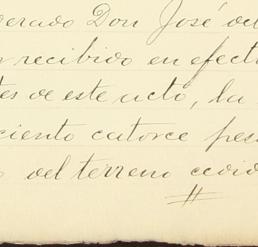 derado Don José de
recibido en efecti
tes de este acto, la
ciento catorce pese
del terreno cedid